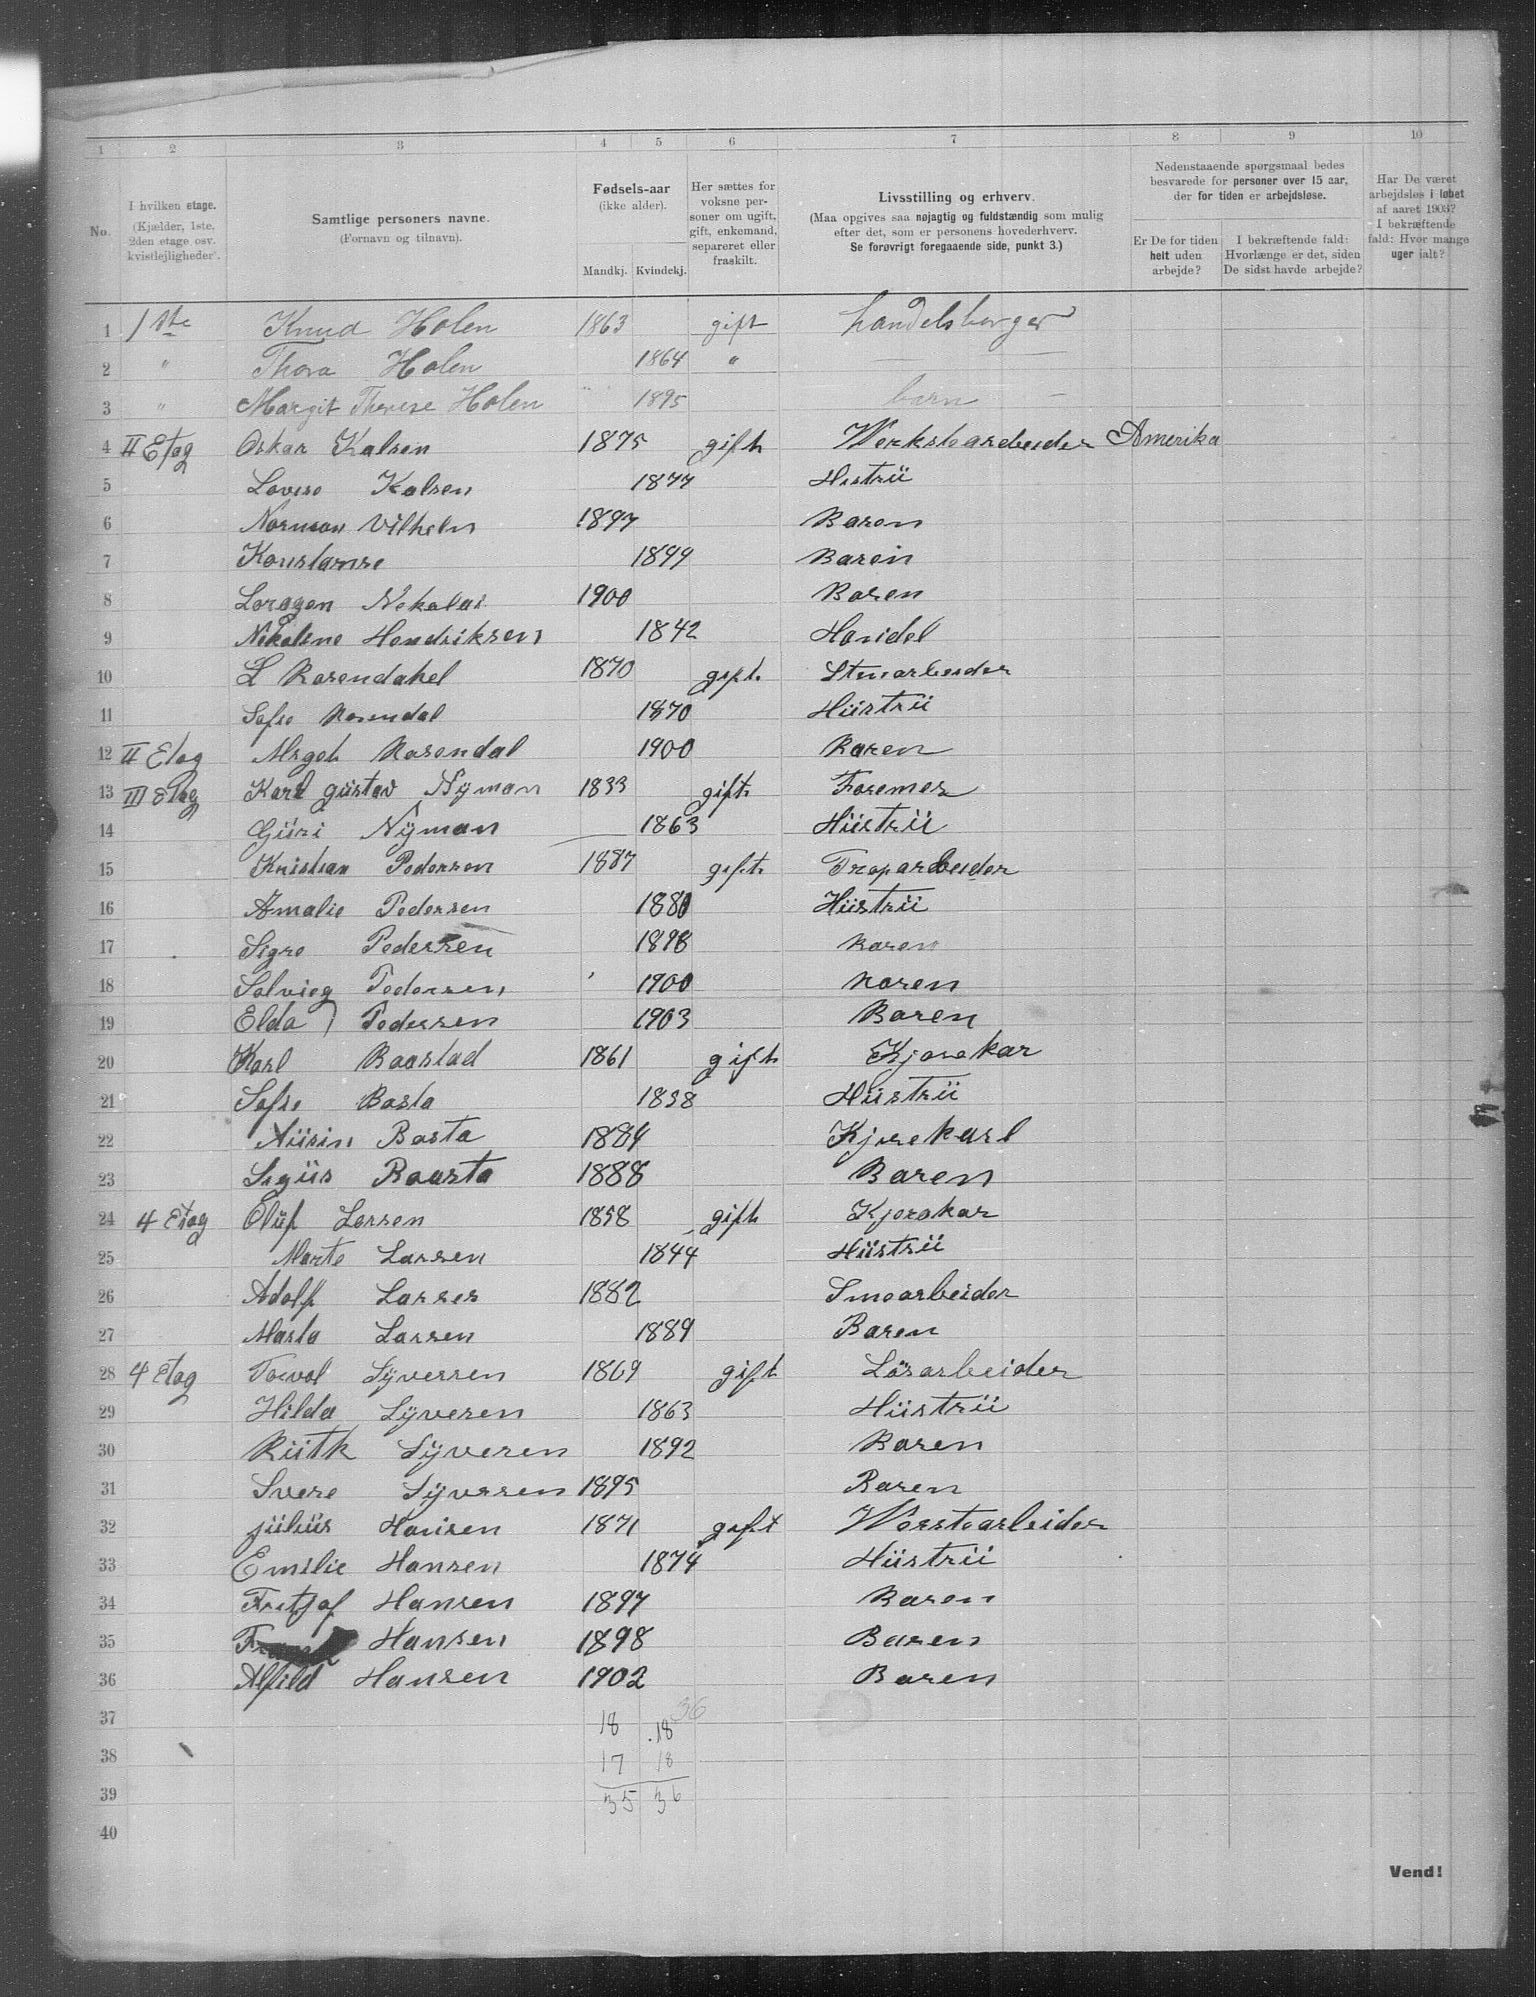 1 2 3 4 5 6 7 8 9 10
No.
I hvilken etage.
(Kjælder, 1ste, 2den etage osv. kvistlejligheder).
Samtlige personers navne.
(Fornavn og tilnavn).
Fødsels-aar
(ikke alder).
Mandkj. Kvindekj.
Her sættes for voksne personer om ugift, gift, enkemand, separeret eller fraskilt.
Livsstilling og erhverv.
(Maa opgives saa nøjagtig og fuldstændig som mulig efter det, som er personens hovederhverv.
Se forøvrigt foregaaende side, punkt 3.)
Nedenstaaende spørgsmaal bedes besvarede for personer over 15 aar, der for tiden er arbejdsløse.
Er De for tiden helt uden arbejde?
I bekræftende fald: Hvorlænge er det, siden De sidst havde arbejde?
Har De været arbejdsløs i løbet af aaret 1903? I bekræftende fald: Hvor mange uger ialt?
1 1ste Knud Holen 1863 gift handelsborger
2 " Thora Holen 1864 "
3 " Margit Therese Holen 1895 barn
4 II Etag Oskar Kalsen 1875 gift Werkstarbeider Amerika
5 Lovise Kalsen 1877 Hustrü
6 Norman Vilhelm 1897 Baren
7 Konstanse 1899 Baren
8 Loragen Nekolai 1900 Baren
9 Nekolene Hendriksen 1842 Handel
10 L Rosendahel 1870 gift Stenarbeider
11 Sofie Rosendal 1870 Hüstrü
12 II Etag Margot Rosendal 1900 Baren
13 III Etag Karl Güstav Nÿman 1833 gift Foremer
14 Güri Nÿman 1863 Hüstrü
15 Kristian Pedersen 1887 gift Troparbeider
16 Amalie Pedersen 1880 Hüstrü
17 Signe Pedersen 1898 Baren
18 Solvieg Pedersen 1900 Baren
19 Elda Pedersen 1903 Baren
20 Karl Baastad 1861 gift Kjorekar
21 Sofie Basta 1858 Hüstrü
22 Basta 1884 Kjorekarl
23 Sigüs Baasta 1888 Baren
24 4 Etag Olüf Larsen 1858 gift Kjorekar
25 Marte Larsen 1844 Hüstrü
26 Adolf Larsen 1882 Smearbeider
27 Marta Larsen 1889 Baren
28 4 Etag Torval Sÿversen 1869 gift Lösarbeider
29 Hilda Sÿveren 1863 Hüstrü
30 Rüth Sÿveren 1892 Baren
31 Svere Sÿversen 1895 Baren
32 Jülius Hansen 1871 gift Werstearbeider
33 Emilie Hansen 1874 Hüstrü
34 Fritjof Hansen 1897 Baren
35 Hansen 1898 Baren
36 Alfild Hansen 1902 Baren
37 18 18 36
38 17 18
39 35 36
40
Vend!